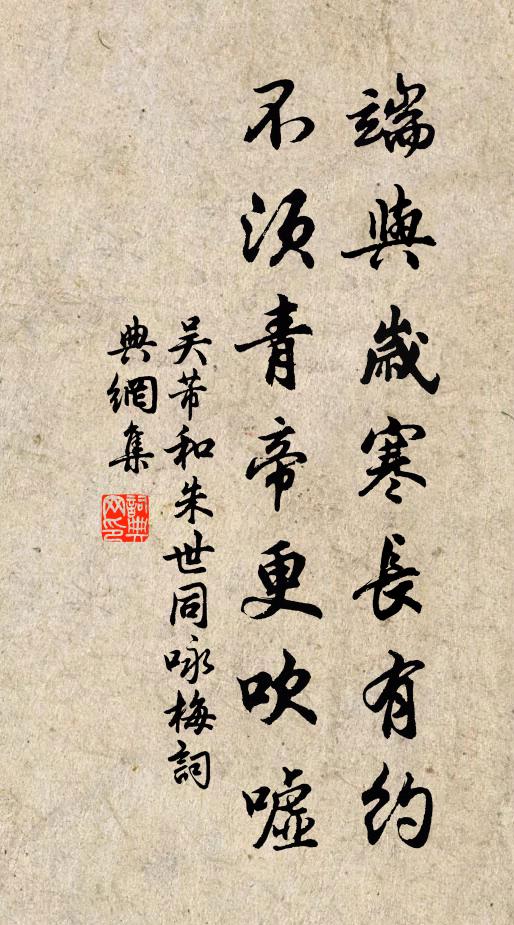 端與歲寒長有約
不須青帝更吹噓
吴芾和朱世同咏梅詞
典網集
詞典網印